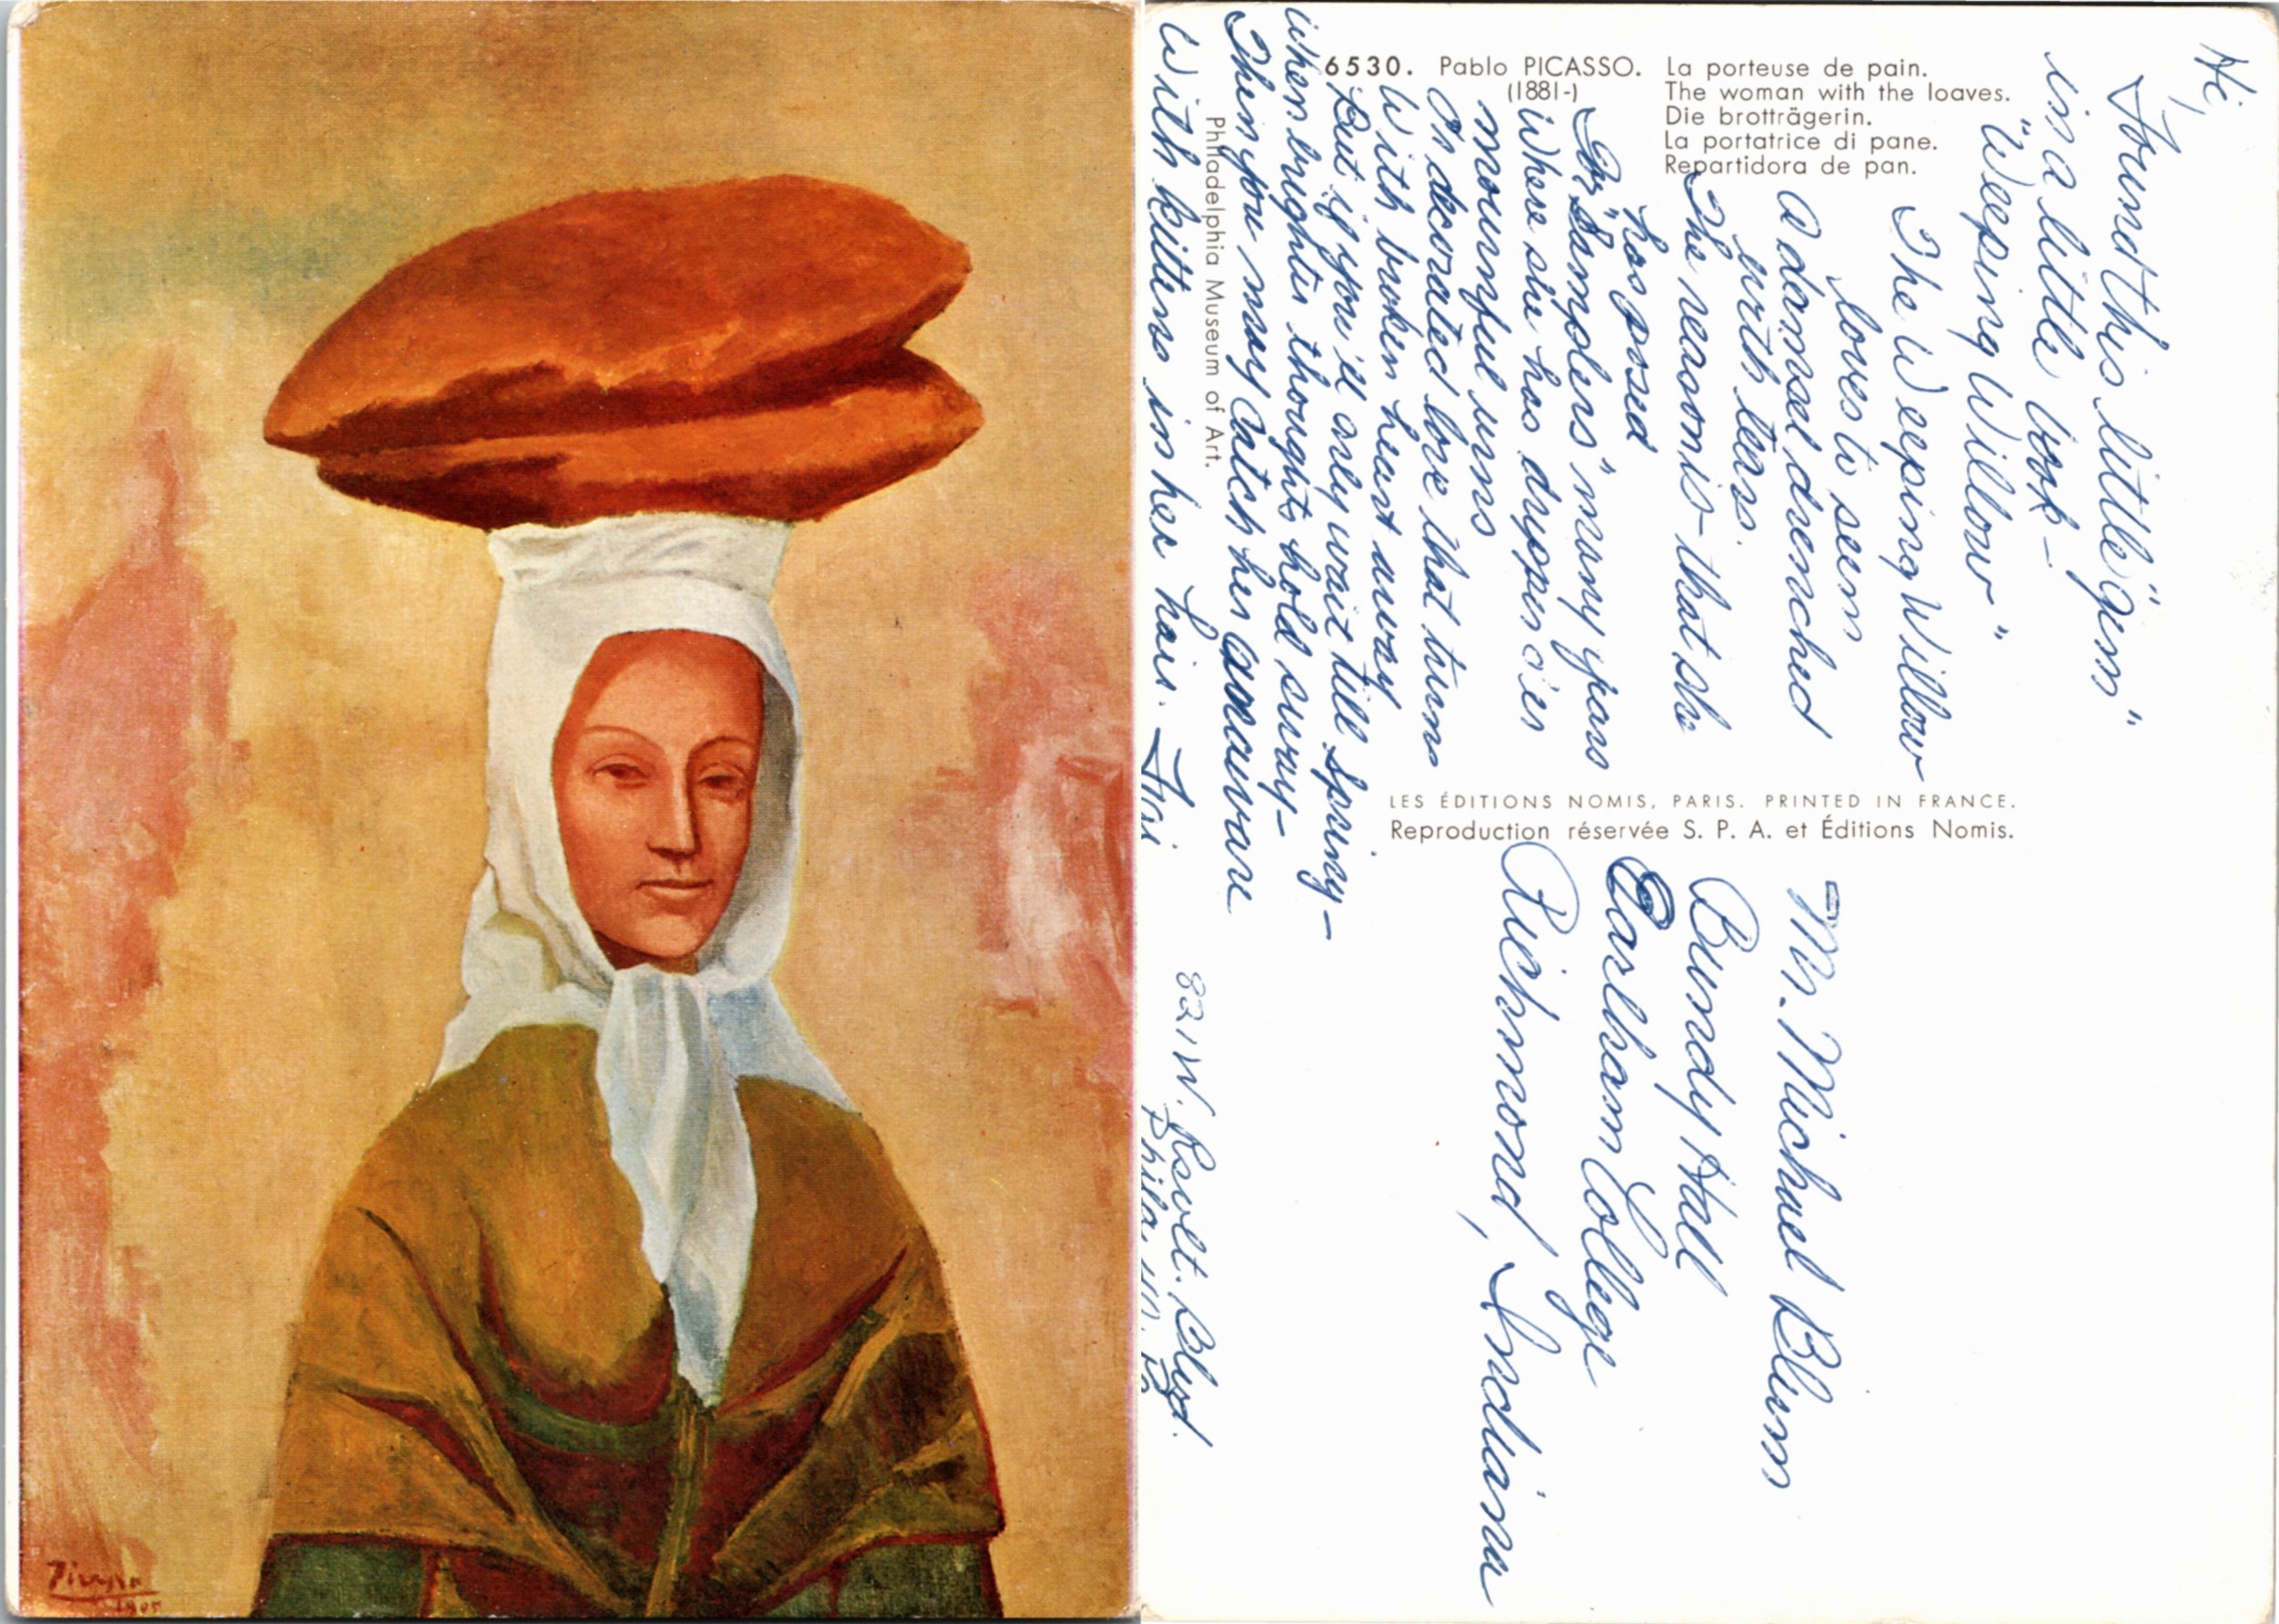 Picasso
1905
6530. Pablo PICASSO.
(1881-)
La porteuse de pain.
The woman with the loaves.
Die brotträgerin.
La portatrice di pane.
Repartidora de pan.
Philadelphia Museum of Art.
LES ÉDITIONS NOMIS, PARIS. PRINTED IN FRANCE.
Reproduction réservée S. P. A. et Éditions Nomis.
Hi,
Found this little "gem"
in a little book –
"Weeping Willow"
The Weeping Willow
loves to seem
A damsel drenched
with tears.
The reason is – that she
has posed
For "Samplers" many years
Where she has drypped o'er
mournful urns
Or decorated love that turn
With broken heart away
But if you'll only wait till spring –
When brighter thoughts hold sway –
Then you may catch her unaware
With kittens in her hair. –
821 W. Rsvlt. Blvd.
Phila.
Mr. Michael Blum
Bundy Hall
Earlham College
Richmond, Indiana